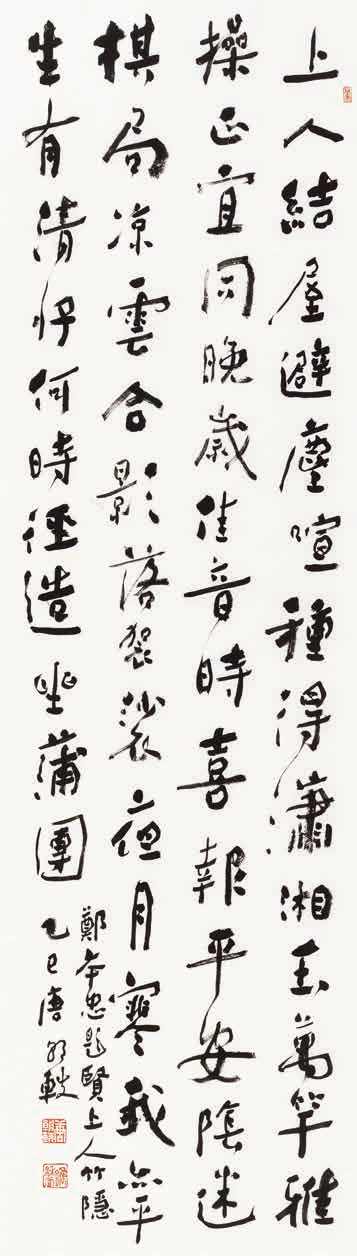 上人結屋避塵喧種得瀟湘玉萬竿雅
操正宜同晚歲佳音時喜報平安陰迷
棋局凉雲合影落袈裟夜月寒我亦平
生有清好何時徑造坐蒲團
鄭本忠題賢上人竹隱
乙巳唐朝軼